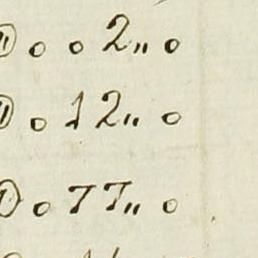 o o 2 " o
o 1 2 " o
o 7 7 " o